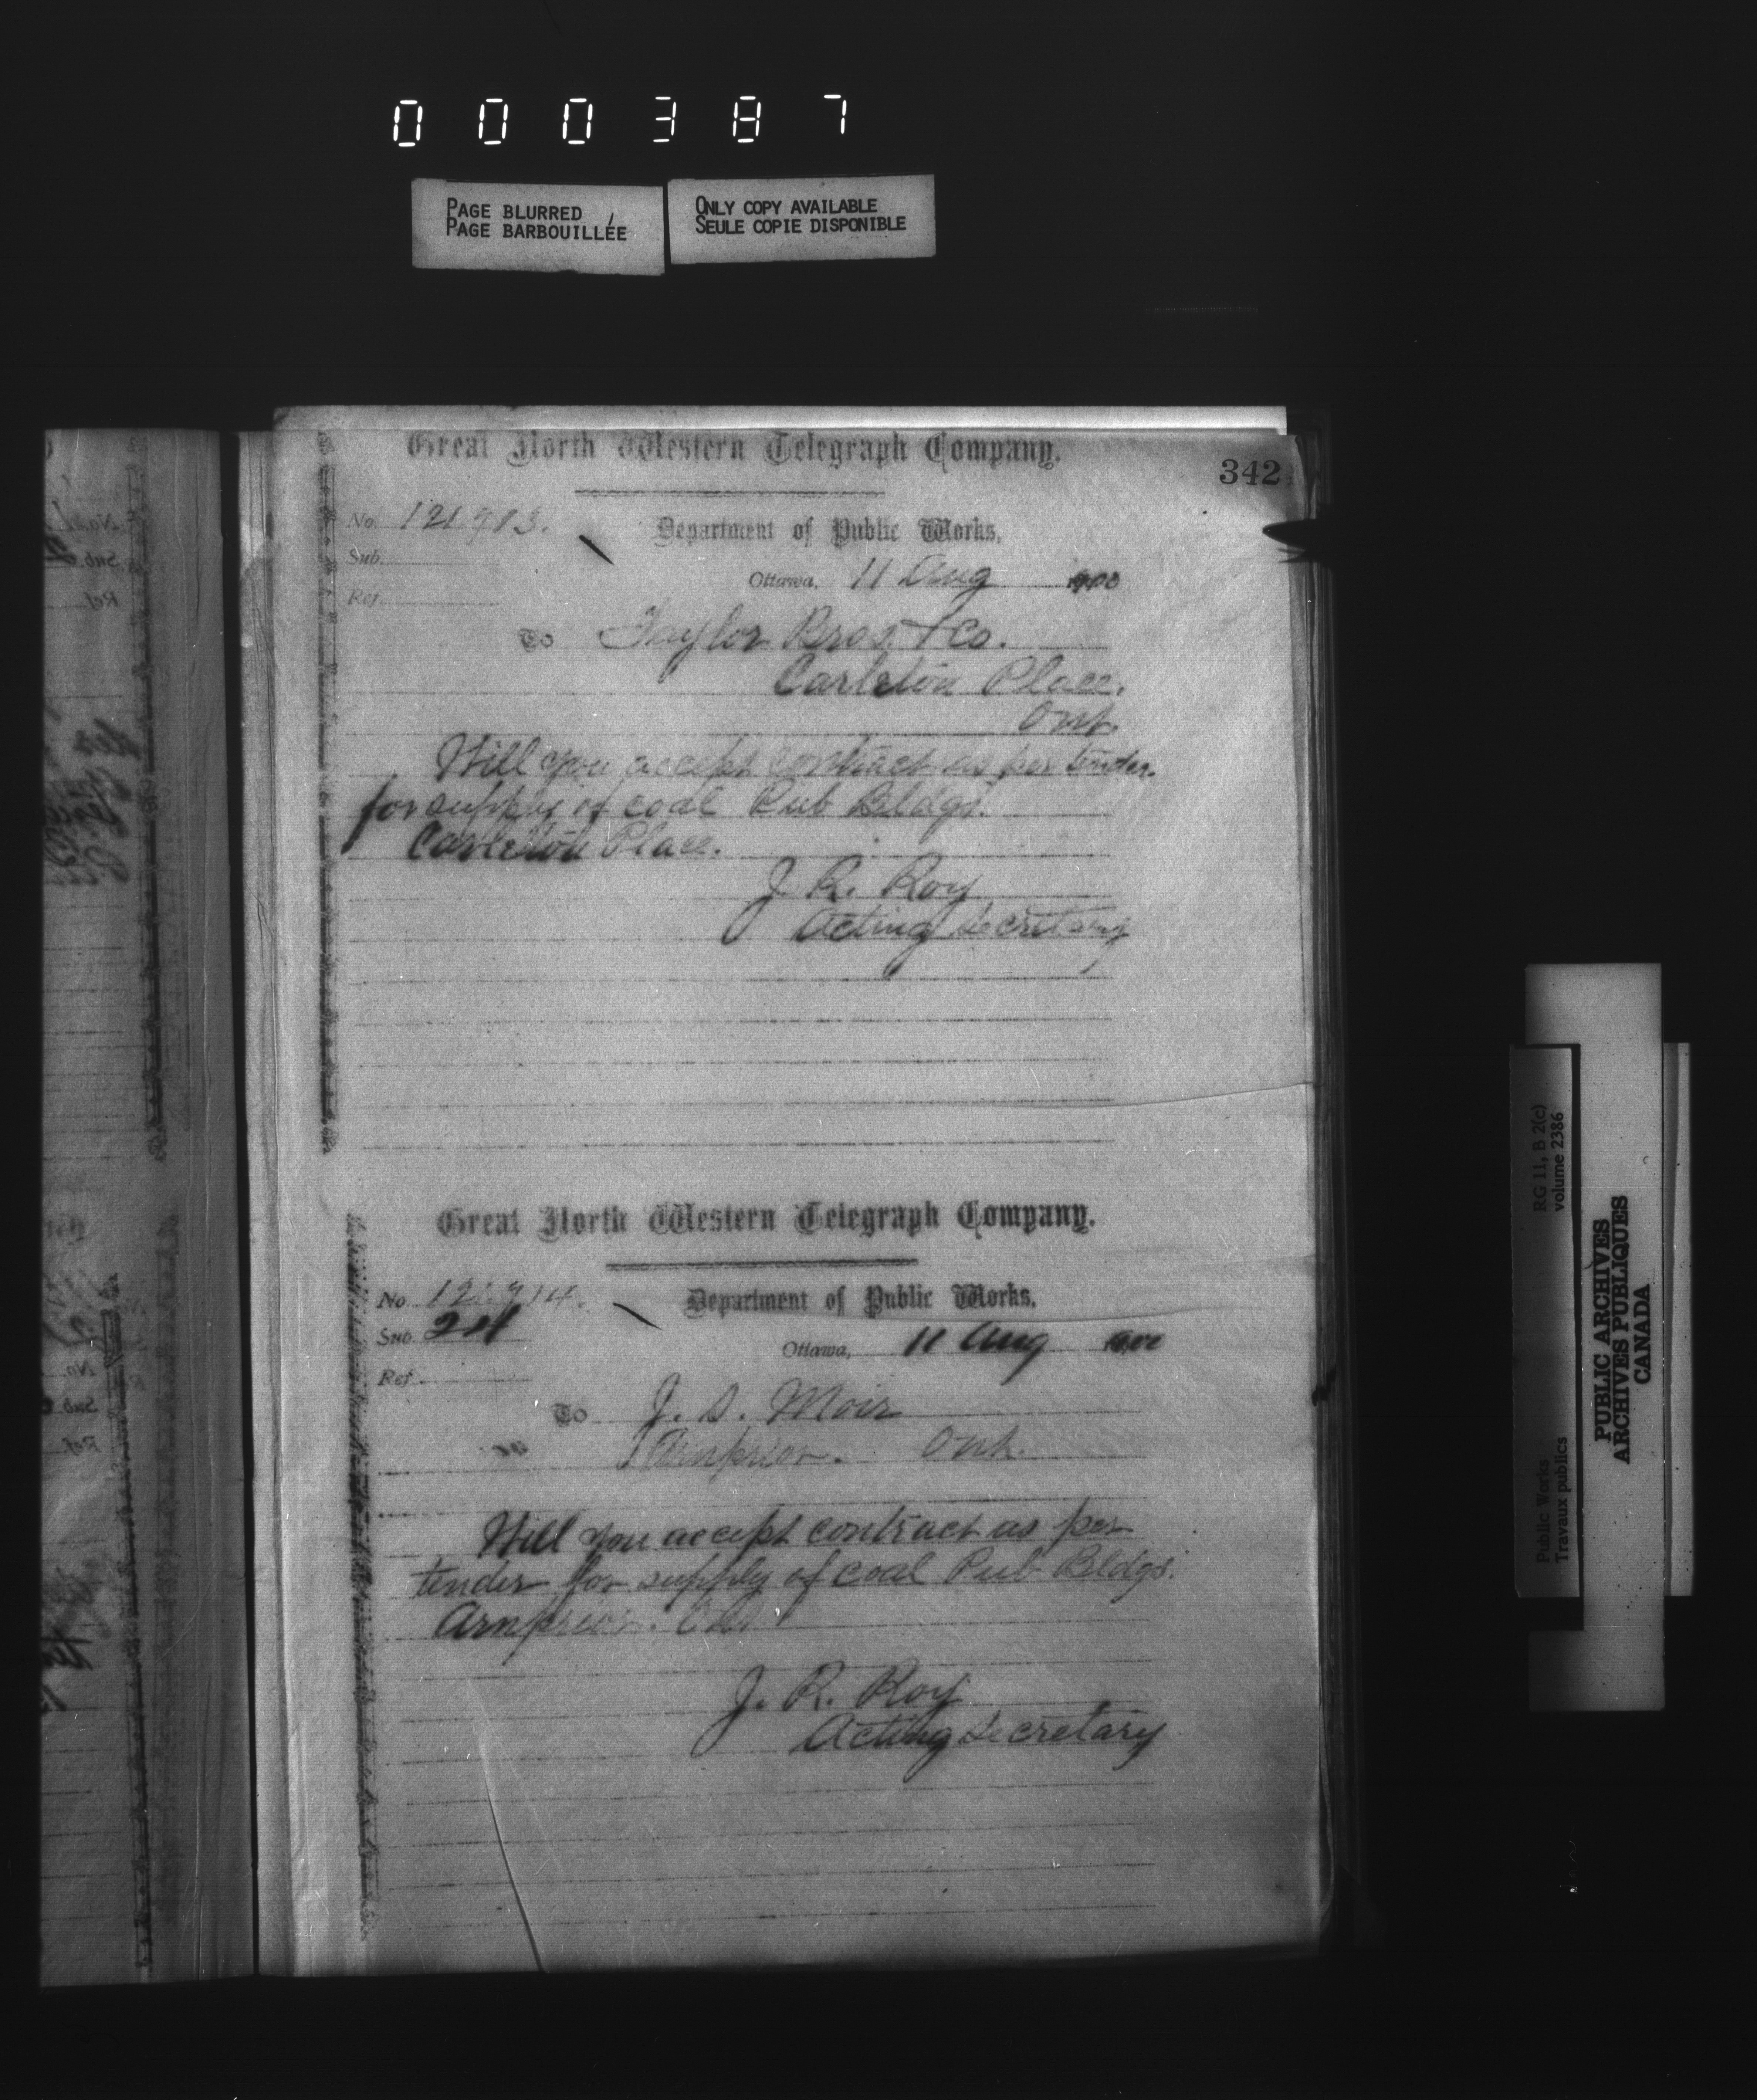 000387
PAGE BLURRED
PAGE BARBOUILLÉE
ONLY COPY AVAILABLE
SEULE COPIE DISPONIBLE
342
Great North Western Telegraph Company.
No. 121913.
Department of Public Works.
Sub.
Ottawa, 11 Aug 1900
Ref.
To Taylor Bros. & Co.
Carleton Place,
Ont.
Will you accept contract as per tender
for supply of coal Pub Bldgs.
Carleton Place.
J. R. Roy
Acting Secretary
Great North Western Telegraph Company.
No 121914.
Department of Public Works.
Sub.
Ottawa, 11 Aug 1900
Ref
To J. S. Moir
Arnprior. Ont.
Will you accept contract as per
tender for supply of coal Pub Bldgs.
Arnprior. Ont
J. R. Roy
Acting Secretary
RG 11, B 2(c)
volume 2386
Public Works
Travaux publics
PUBLIC ARCHIVES
ARCHIVES PUBLIQUES
CANADA